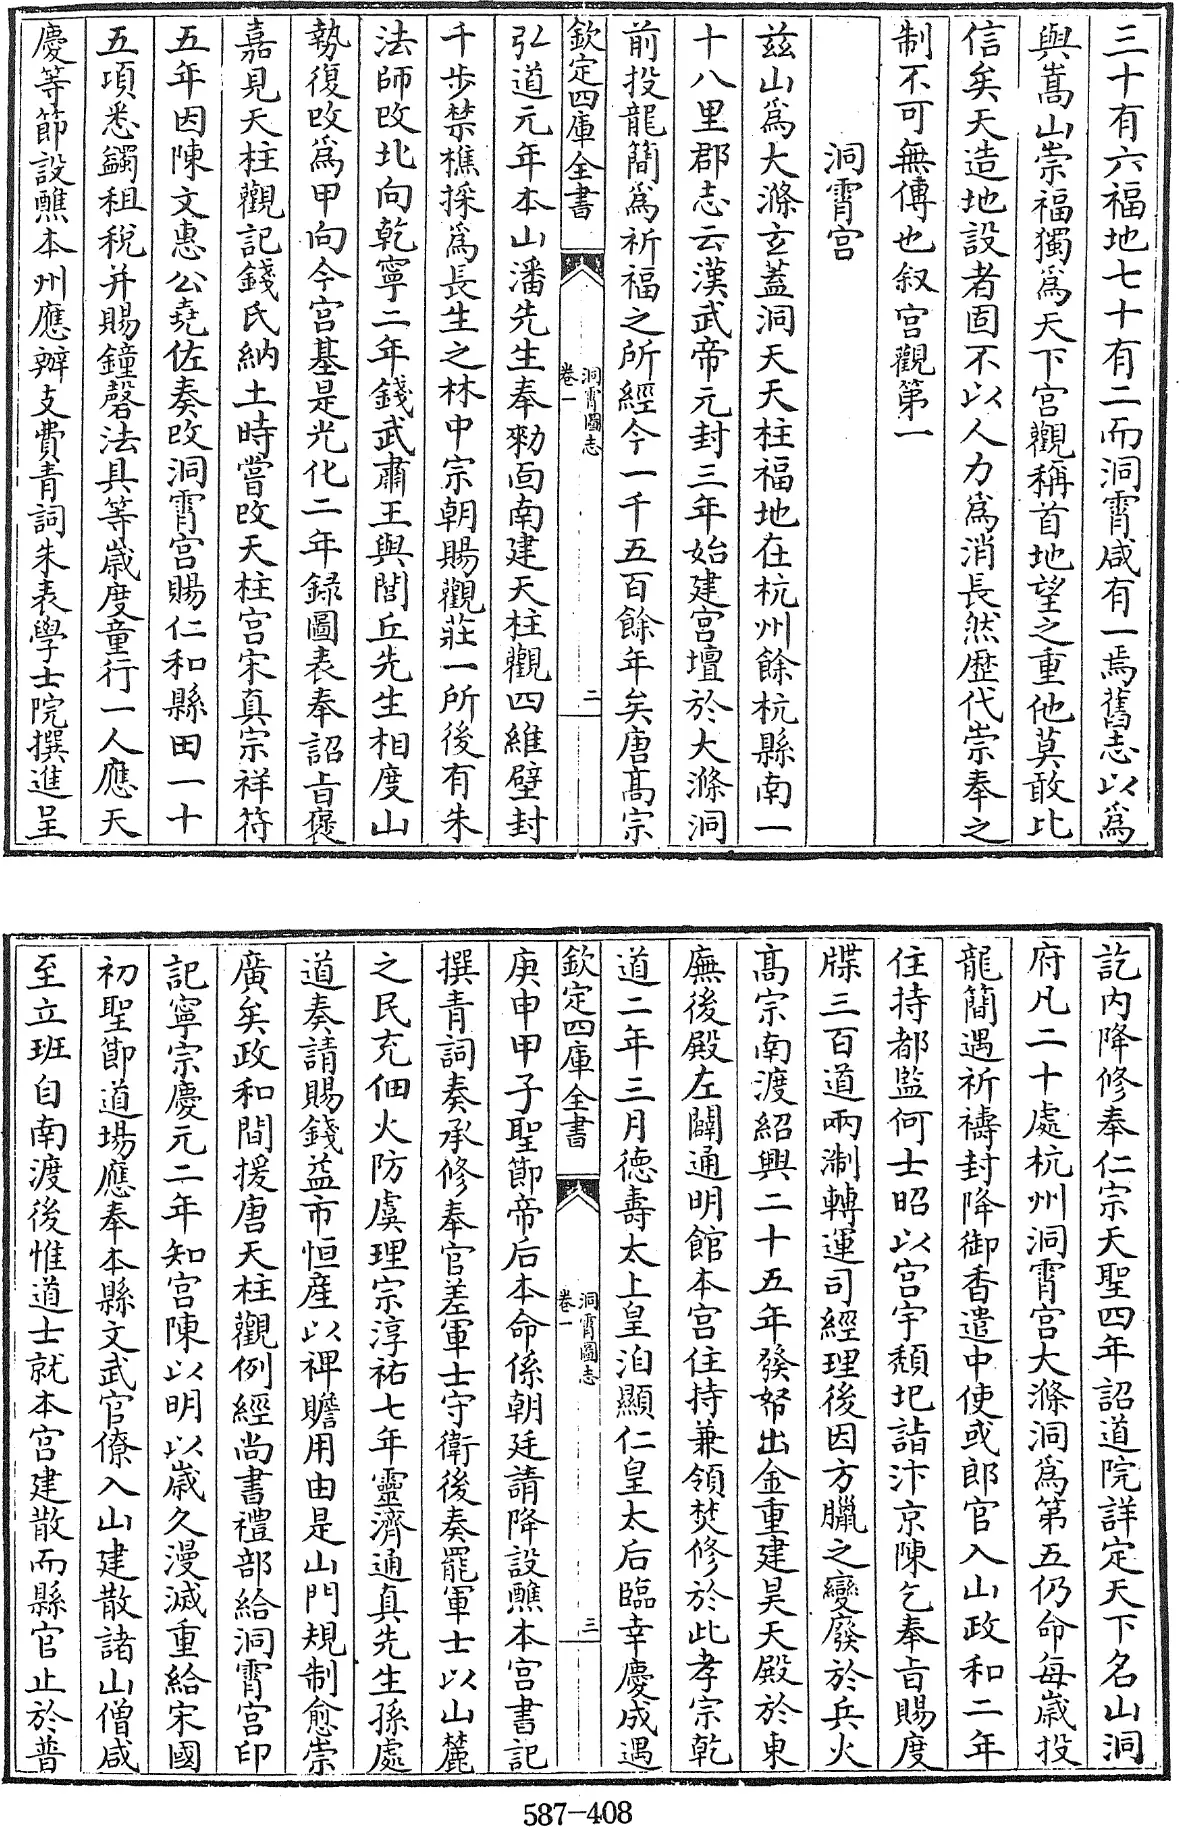 三十有六福地七十有二而洞霄咸有一焉舊志以爲
與嵩山崇福獨爲天下宫觀稱首地望之重他莫敢比
信矣天造地設者固不以人力爲消長然歴代崇奉之
制不可無傳也叙宫觀第一
洞霄宫
兹山爲大滌玄蓋洞天天柱福地在杭州餘杭縣南一
十八里郡志云漢武帝元封三年始建宫壇於大滌洞
前投龍簡爲祈福之所經今一千五百餘年矣唐髙宗
欽定四庫全書
洞霄圖志
卷一
二
弘道元年本山潘先生奉勑面南建天柱觀四維壁封
千步禁樵採爲長生之林中宗朝賜觀莊一所後有朱
法師改北向乾寧二年錢武肅王與閭丘先生相度山
勢復改爲甲向今宫基是光化二年録圖表奉詔旨褒
嘉見天柱觀記錢氏納土時嘗改天柱宫宋真宗祥符
五年因陳文惠公堯佐奏改洞霄宫賜仁和縣田一十
五項悉蠲租稅并賜鐘磬法具等歳度童行一人應天
慶等節設醮本州應辦支費青詞朱表學士院撰進呈
訖内降修奉仁宗天聖四年詔道院詳定天下名山洞
府凡二十處杭州洞霄宫大滌洞爲第五仍命每歳投
龍簡遇祈禱封降御香遣中使或郎官入山政和二年
住持都監何士昭以宫宇頹圯詣汴京陳乞奉旨賜度
牒三百道兩淛轉運司經理後因方臘之變廢於兵火
髙宗南渡紹興二十五年發帑出金重建昊天殿於東
廡後殿左闢通明館本宫住持兼領焚修於此孝宗乾
道二年三月德壽太上皇洎顯仁皇太后臨幸慶成遇
欽定四庫全書
洞霄圖志
卷一
三
庚申甲子聖節帝后本命係朝廷請降設醮本宫書記
撰青詞奏承修奉官差軍士守衛後奏罷軍士以山麓
之民充佃火防虞理宗淳祐七年靈濟通真先生孫處
道奏請賜錢益市恒産以裨贍用由是山門規制愈崇
廣矣政和間援唐天柱觀例經尚書禮部給洞霄宫印
記寧宗慶元二年知宫陳以明以歳久漫滅重給宋國
初聖節道場應奉本縣文武官僚入山建散諸山僧咸
至立班自南渡後惟道士就本宫建散而縣官止於普
587-408